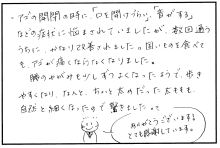 ・アゴの開閉の時に、「口を開けづらい」「音がする」
などの症状に悩まされていましたが、数回通う
うちに、かなり改善されました。固いものを食べて
も、アゴが痛くならなくなりました。
腰のゆがみも少しずつよくなったようで、歩き
やすくなり、なんと、ちょっと太めだった太ももも、
自然と細くなったので驚きました。っ
ありがとうございます
とても感謝しています。